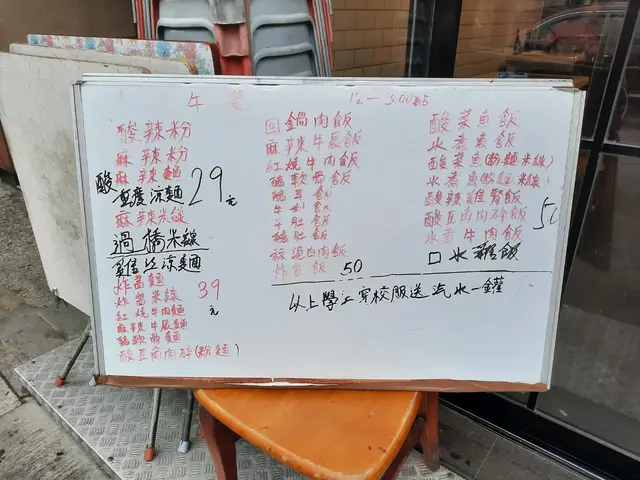 午餐 12—3:00點
酸辣粉
麻辣粉
麻辣麵
酸
重慶涼麵 29元
麻辣米線
過橋米線
雞絲涼麵
炸醬麵
炸醬米線 39元
紅燒牛肉麵
麻辣牛展麵
豬軟骨麵
酸豆角肉碎(粉麵)
回鍋肉飯
麻辣牛展飯
紅燒牛肉飯
豬軟骨飯
牛肚飯
豬肚飯
蒜泥白肉飯
炸醬飯 50
酸菜魚飯
水煮魚飯
酸菜魚(粉.麵米線)
水煮魚(粉.麵米線)
酸辣雞腎飯
酸豆角肉碎飯
水煮牛肉飯
口水雞飯
以上學生穿校服送汽水一罐